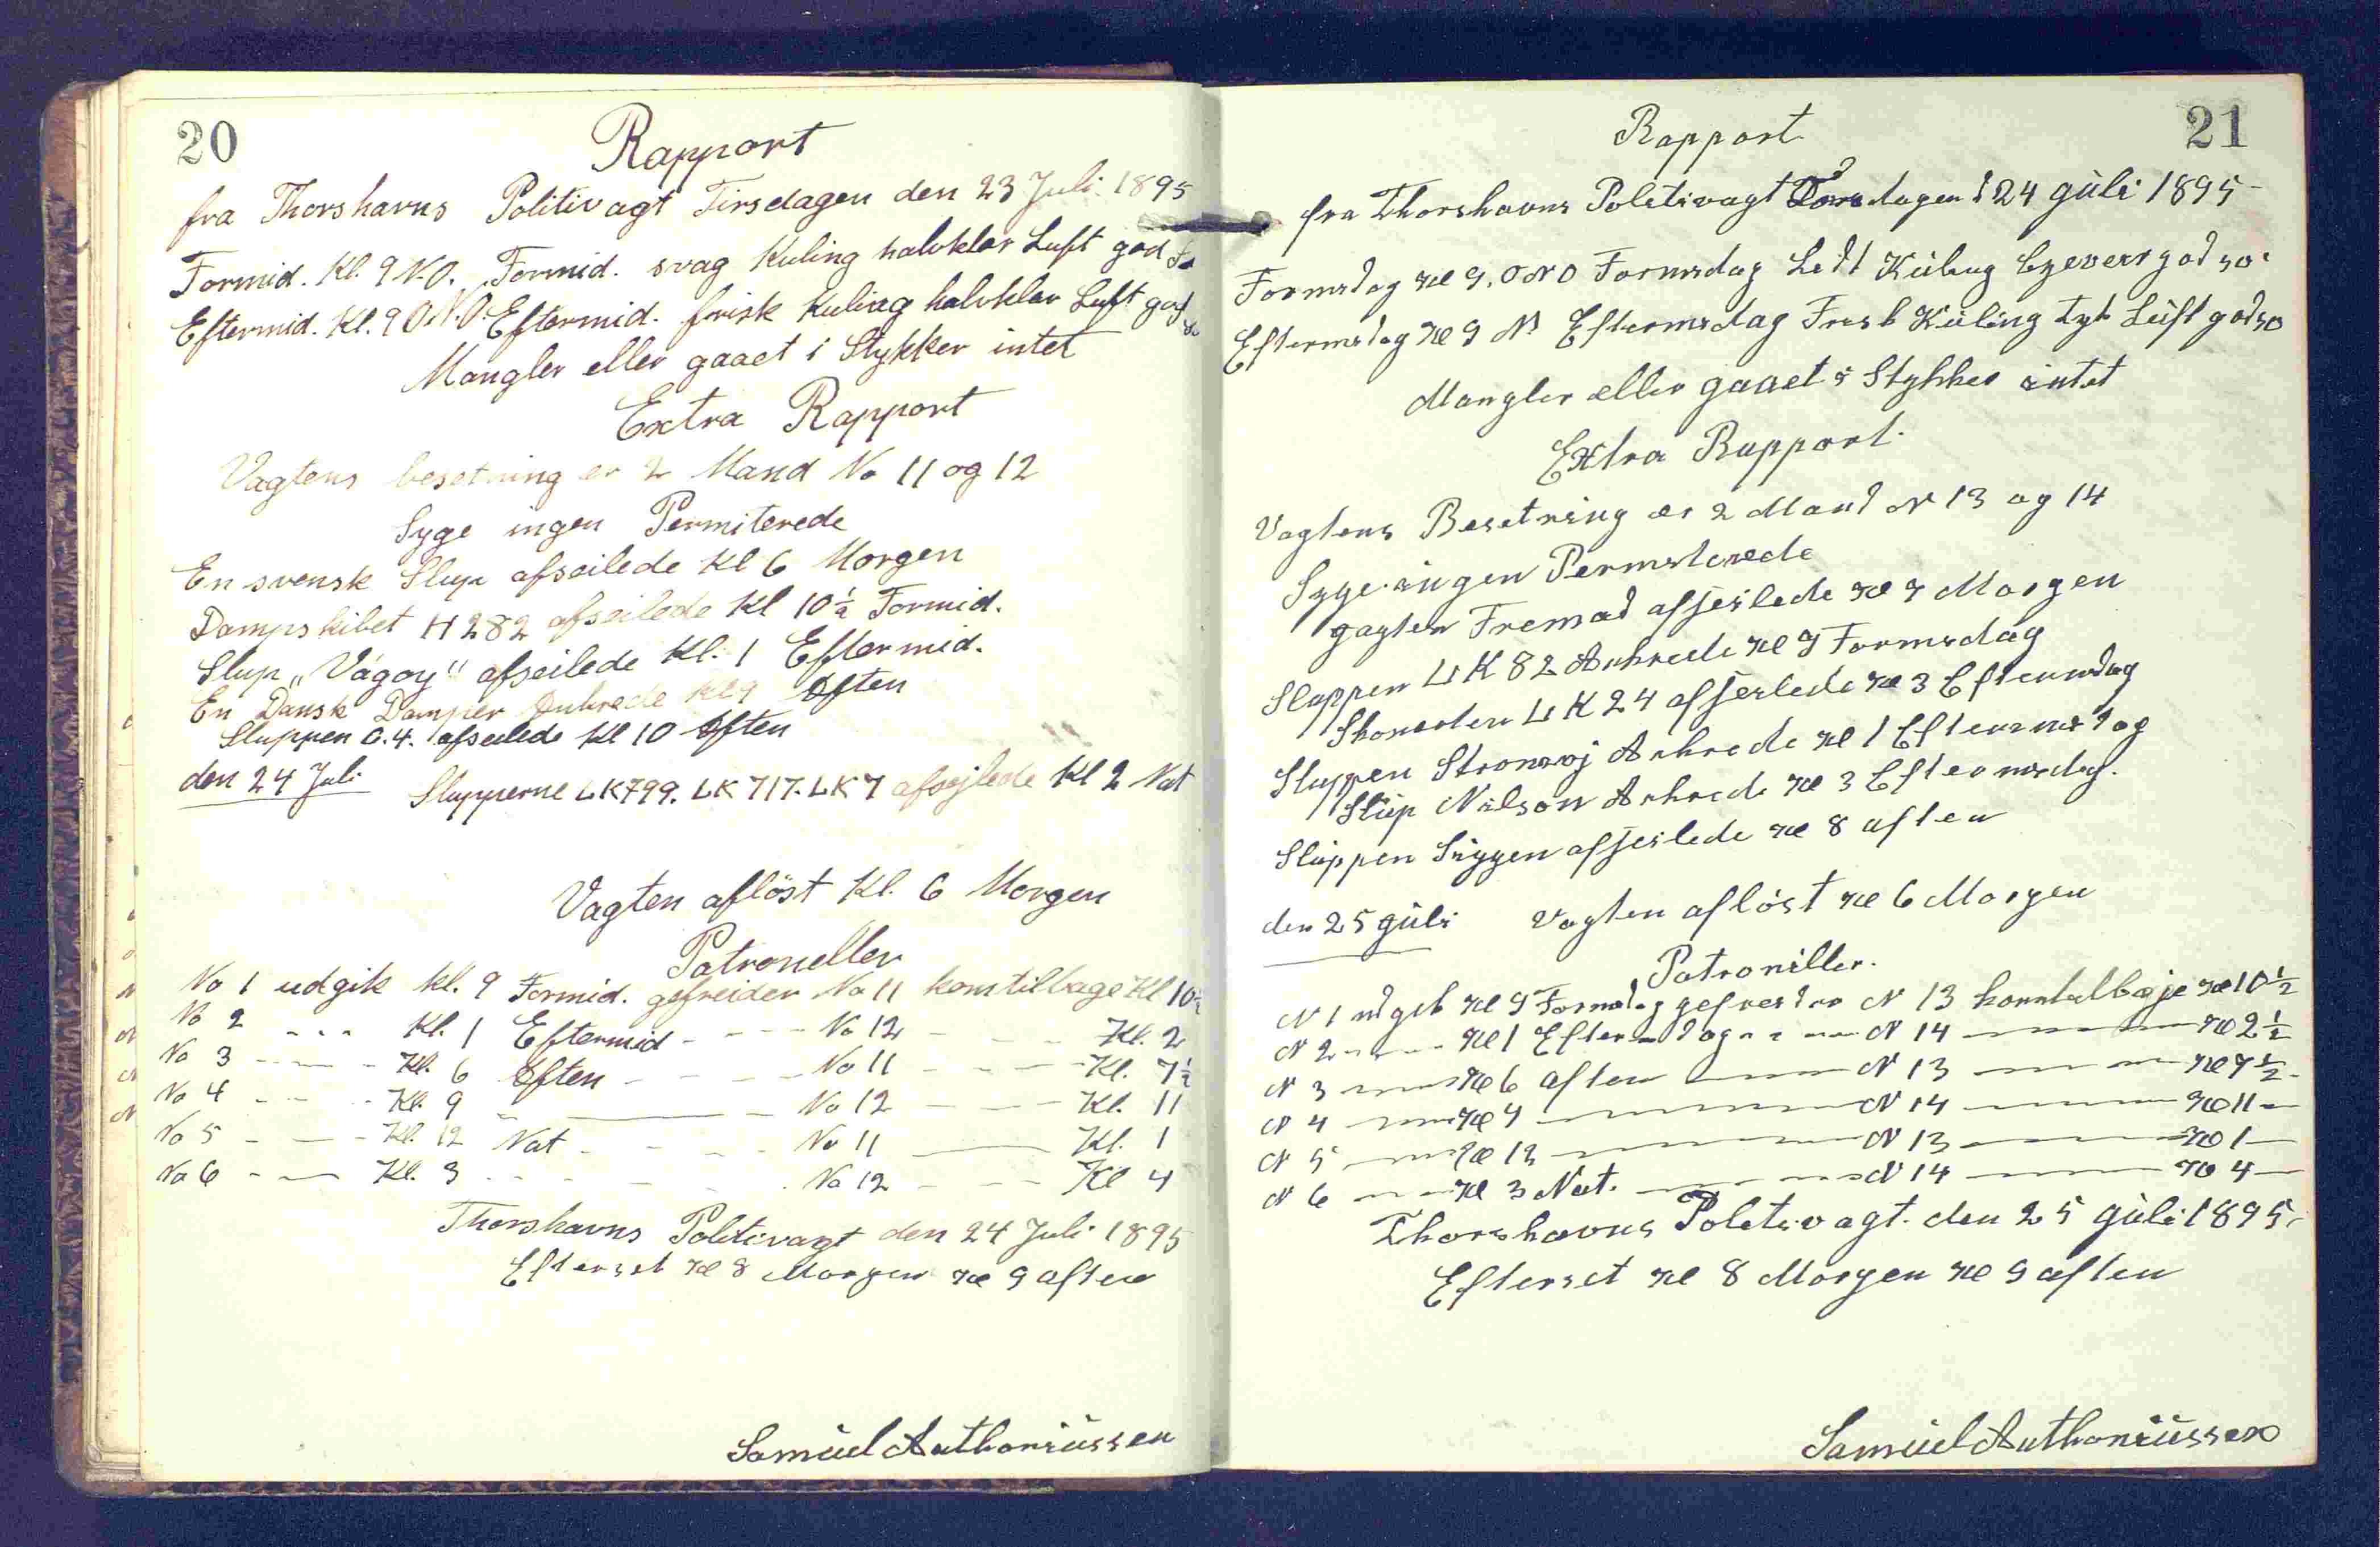 20
Rapport
fra Thorshavns Politivagt Tirsdagen den 23 Juli 1895
Formid. Kl. 9 N.O. Formid. svag Kuling halvklar Luft god
Eftermid. Kl. 9 O.N.O. Eftermid. frisk Kuling halvklar Luft god
Mangler eller gaaet i Stykker intet
Extra Rapport
Vagtens besetning er 2 Mand No 11 og 12
Syge ingen Permiterede
En svensk Slup afseilede Kl 6 Morgen
Dampskibet H 282 afseilede Kl 10½ Formid.
Slup „Vágoy" afseilede Kl. 1 Eftermid.
En Dansk Damper Ankrede Kl 9 Aften
Sluppen O.4. afseilede Kl 10 Aften
den 24 Juli Slupperne LK799. LK 717. LK 7 afsejlede Kl 2 Nat
Vagten aflöst Kl. 6 Morgen
Patroneller
No 1 udgik kl. 9 Formid. gefreider No 11 kom tilbage Kl 10½
No 2 - - - Kl. 1 Eftermid - - - No 12 - - - Kl. 2
No 3 - - - Kl. 6 Aften - - - No 11 - - - Kl. 7½
No 4 - - - Kl. 9 - - - No 12 - - - Kl. 11
No 5 - - - Kl. 12 Nat - - - No 11 - - - Kl. 1
No 6 - - - Kl. 3 - - - No 12 - - - Kl 4
Thorshavns Politivagt den 24 Juli 1895
Efterset Kl 8 Morgen Kl 9 aften
Samüel Anthoniüssen
21
Rapport
fra Thorshavns Politivagt dagen d 24 Jüli 1895
Formidag Kl 9. O N O Formidag Let Küling god
Eftermidag Kl 9 N Eftermidag Frisk Küling tyk Lüft god
Mangler eller gaaet i Stykker intet
Extra Rapport.
Vagtens Besetning er 2 Mand N 13 og 14
Syge ingen Permiterede
Fremad afseilede Kl 7 Morgen
Sluppen LK 82 Ankrede Kl 9 Formidag
Skonerten LK 24 afseilede Kl 3 Eftermidag
Sluppen Stromoj Ankrede Kl 1 Eftermidag
Slüp Nilson Ankrede Kl 3 Eftermidag.
Slüppen afseilede Kl 8 aften
den 25 Jüli Vagten aflöst Kl 6 Morgen
Patroniller.
N 1 udgik Kl 9 Formidag gefreider N 13 kom tilbage Kl 10½
N 2 - - - Kl 1 Eftermidag - - - N 14 - - - Kl 2½
N 3 - - - Kl 6 aften - - - N 13 - - - Kl 7½
N 4 - - - Kl 9 - - - N 14 - - - Kl 11
N 5 - - - Kl 12 - - - N 13 - - - Kl 1
N 6 - - - Kl 3 Nat. - - - N 14 - - - Kl 4
Thorshavns Politivagt. den 25 Jüli 1895
Efterset Kl 8 Morgen Kl 9 aften
Samüel Anthoniüssen